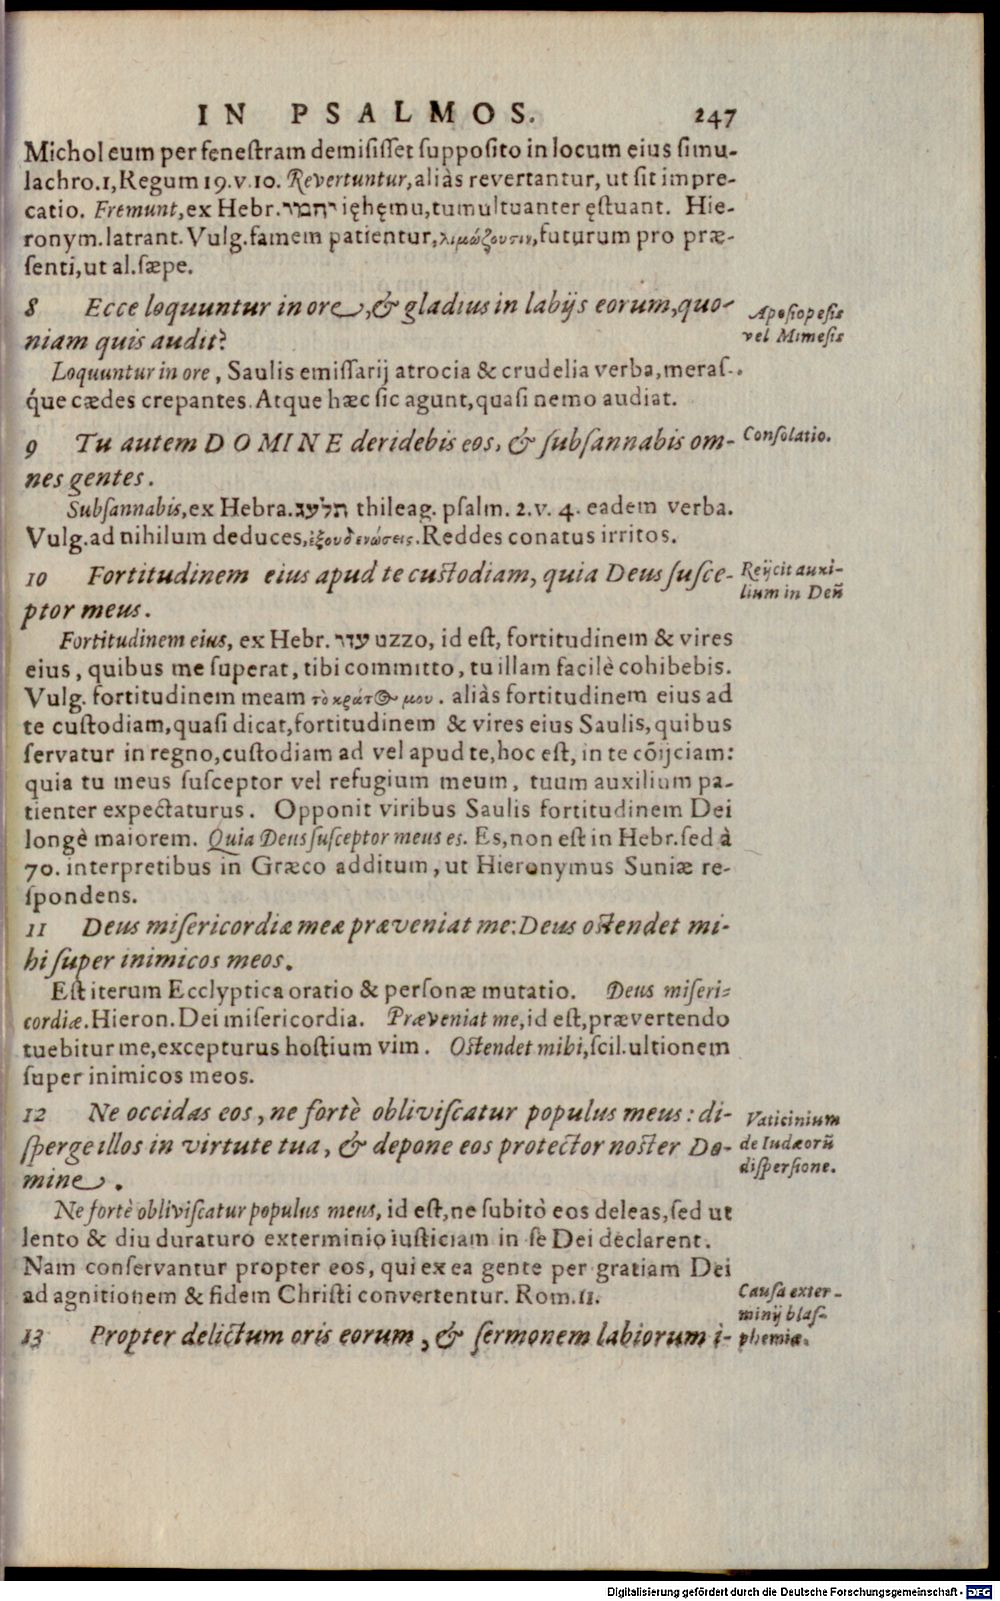 IN PSALMOS. 247
Michol eum per fenestram demisisset supposito in locum eius simu-
lachro.1,Regum 19.v.10. Revertuntur,aliàs revertantur, ut sit impre-
catio. Fremunt,ex Hebr.יהמו ięhęmu,tumultuanter ęstuant. Hie-
ronym.latrant.Vulg.famem patientur,λιμώξουσιν,futurum pro præ-
senti,ut al.sæpe.
8 Ecce loquuntur in ore,& gladius in labijs eorum,quo-
niam quis audit?
Aposiopesis
vel Mimesis
Loquuntur in ore, Saulis emissarij atrocia & crudelia verba,meras-
q́ue cædes crepantes.Atque hæc sic agunt,quasi nemo audiat.
9 Tu autem DOMINE deridebis eos, & subsannabis om-
nes gentes.
Consolatio.
Subsannabis,ex Hebra.תלעג thileag. psalm. 2.v. 4. eadem verba.
Vulg.ad nihilum deduces,ἐξουδενώσεις.Reddes conatus irritos.
10 Fortitudinem eius apud te custodiam, quia Deus susce-
ptor meus.
Reijcit auxi-
lium in Deũ
Fortitudinem eius, ex Hebr. עזו uzzo, id est, fortitudinem & vires
eius, quibus me superat, tibi committo, tu illam facilè cohibebis.
Vulg. fortitudinem meam τὸ κράτος μου. aliàs fortitudinem eius ad
te custodiam,quasi dicat,fortitudinem & vires eius Saulis,quibus
servatur in regno,custodiam ad vel apud te,hoc est, in te cõijciam:
quia tu meus susceptor vel refugium meum, tuum auxilium pa-
tienter expectaturus. Opponit viribus Saulis fortitudinem Dei
longè maiorem. Quia Deus susceptor meus es. Es,non est in Hebr.sed à
70. interpretibus in Græco additum, ut Hieronymus Suniæ re-
spondens.
11 Deus misericordiæ meæ præveniat me:Deus ostendet mi-
hi super inimicos meos.
Est iterum Ecclyptica oratio & personæ mutatio. Deus miseri-
cordiæ.Hieron.Dei misericordia. Præveniat me,id est,prævertendo
tuebitur me,excepturus hostium vim. Ostendet mihi,scil.ultionem
super inimicos meos.
12 Ne occidas eos, ne fortè obliviscatur populus meus: di-
sperge illos in virtute tua, & depone eos protector noster Do-
mine.
Vaticinium
de Iudæorũ
dispersione.
Ne fortè obliviscatur populus meus, id est,ne subitò eos deleas,sed ut
lento & diu duraturo exterminio iusticiam in se Dei declarent.
Nam conservantur propter eos, qui ex ea gente per gratiam Dei
ad agnitionem & fidem Christi convertentur. Rom.11.
13 Propter delictum oris eorum, & sermonem labiorum i-
Causa exter-
minij blas-
phemia.
Digitalisierung gefördert durch die Deutsche Forschungsgemeinschaft - DFG